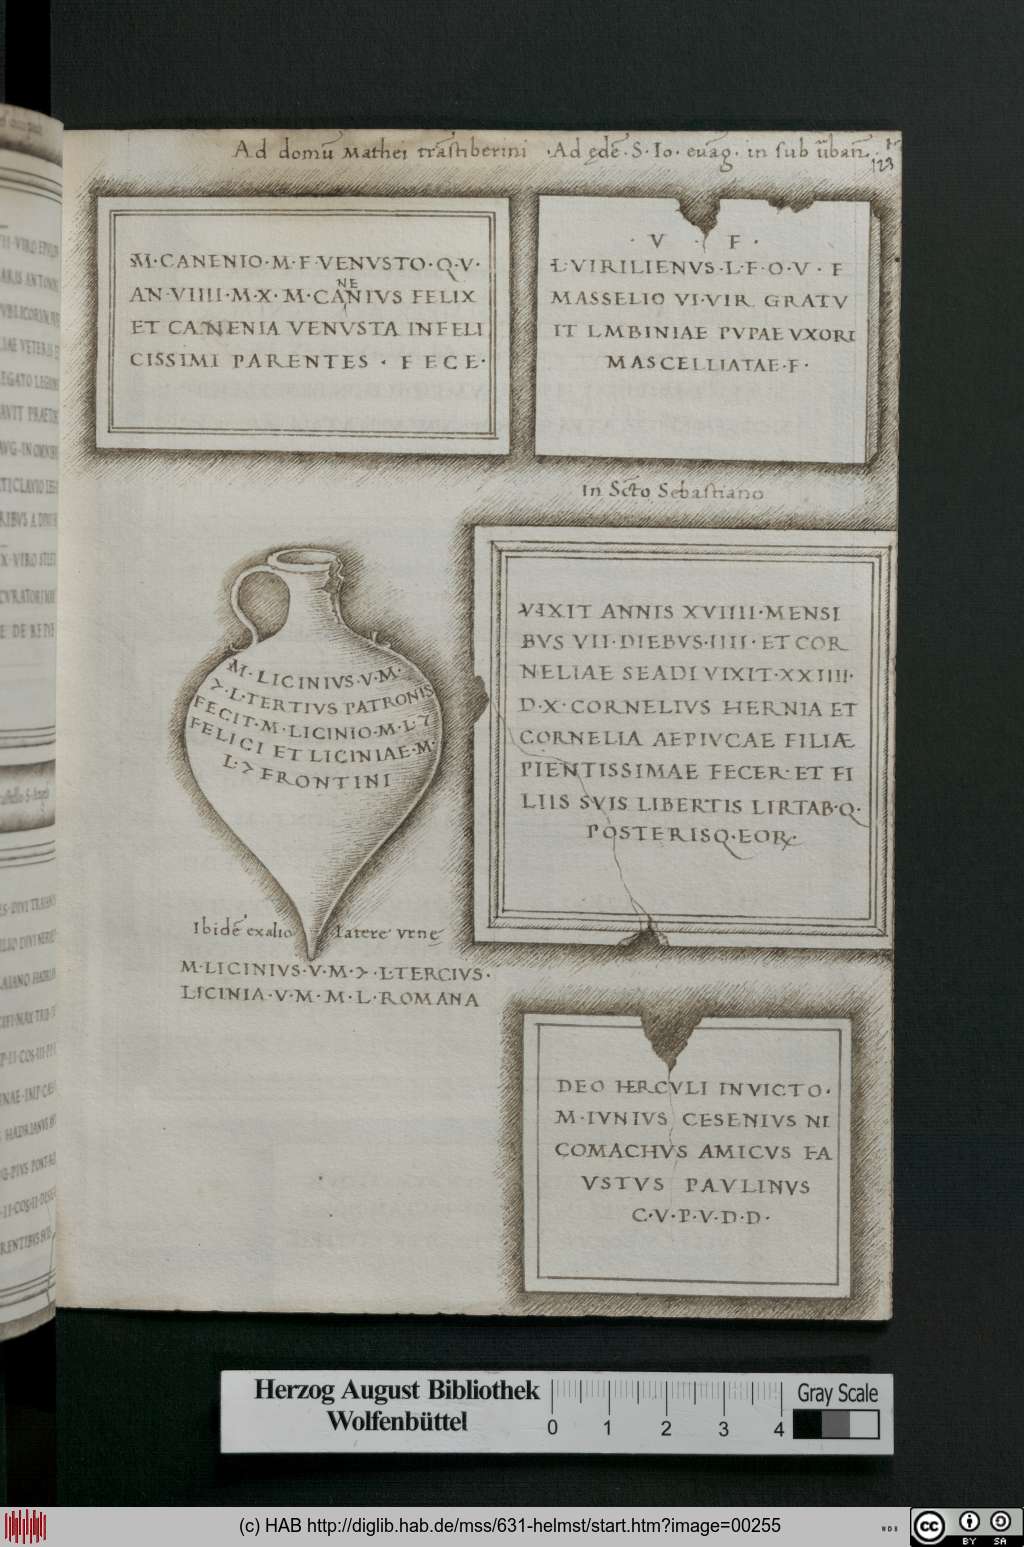 Ad domū Mathei trāstiberini · Ad ędē · S · Io · euāg · in sub ūbañ ·
123
M · CANENIO · M · F VENVSTO · Q · V ·
AN · VIIII · M · X · M · CANIVS FELIX
NE
ET CANENIA VENVSTA INFELI
CISSIMI PARENTES · FECE ·
· V · F ·
L · VIRILIENVS · L · F · O · V · F
MASSELIO VI · VIR GRATV
IT LMBINIAE PVPAE VXORI
MASCELLIATAE · F ·
In Scto Sebastiano
M · LICINIVS · V · M ·
> · L · TERTIVS PATRONIS
FECIT · M · LICINIO · M · L · >
FELICI ET LICINIAE · M ·
L · > FRONTINI
Ibidē exalio latere vrnę
M · LICINIVS · V · M · > · L · TERCIVS ·
LICINIA · V · M · M · L · ROMANA
VIXIT ANNIS XVIIII · MENSI
BVS VII · DIEBVS · IIII · ET COR
NELIAE SEADI VIXIT · XXIIII ·
D · X · CORNELIVS HERNIA ET
CORNELIA AEPIVCAE FILIÆ
PIENTISSIMAE FECER · ET FI
LIIS SVIS LIBERTIS LIRTAB · Q ·
POSTERISQ · EOR ·
DEO HERCVLI INVICTO ·
M · IVNIVS CESENIVS NI
COMACHVS AMICVS FA
VSTVS PAVLINVS
C · V · P · V · D · D ·
Herzog August Bibliothek
Wolfenbüttel
0 1 2 3 4
Gray Scale
(c) HAB http://diglib.hab.de/mss/631-helmst/start.htm?image=00255
WDB
cc BY SA